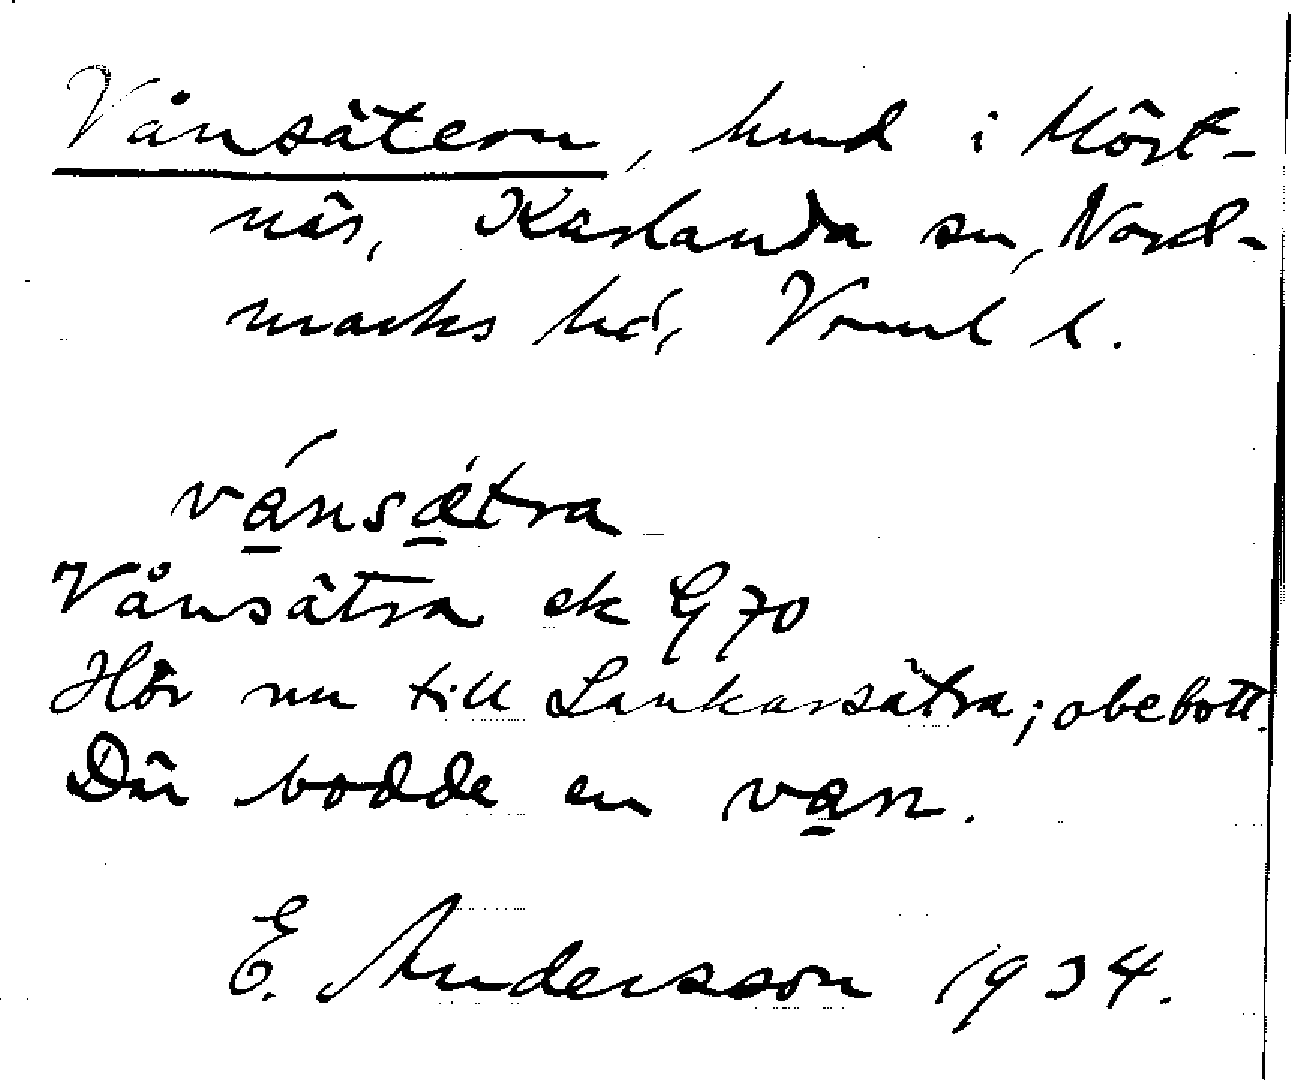 Vånsätern, hmd i Mört-
näs, Karlanda sn, Nord-
marks hd, Vrml l.
vánsǽtra
Vånsätra ek G 70
Hör nu till Lankarsätra; obebott.
Där bodde en van.
E. Andersson 1934.